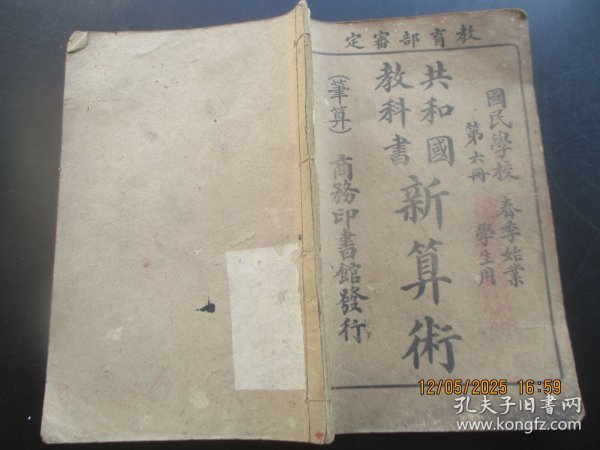 教育部審定
國民學校 春季始業
第六冊 學生用
共和國
教科書
新算術
（筆算）
商務印書館發行
12/05/2025 16:59
孔夫子旧书网
www.kongfz.com